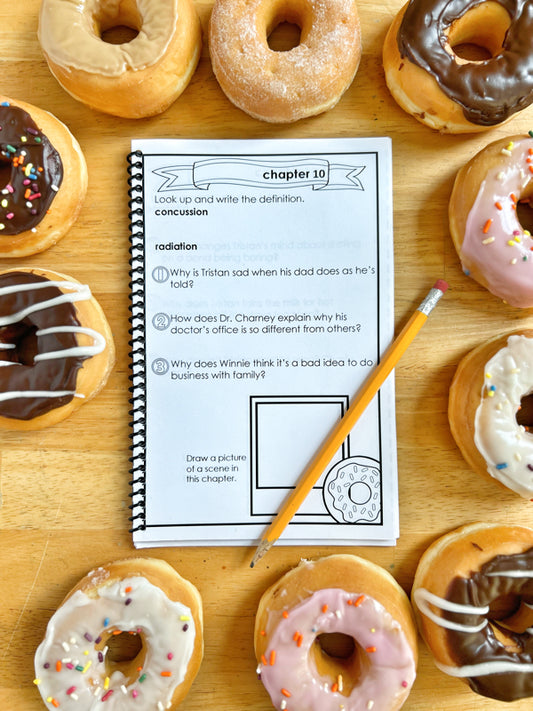 chapter 10
Look up and write the definition.
concussion
radiation
1 Why is Tristan sad when his dad does as he's
told?
2 How does Dr. Charney explain why his
doctor's office is so different from others?
3 Why does Winnie think it's a bad idea to do
business with family?
Draw a picture
of a scene in
this chapter.